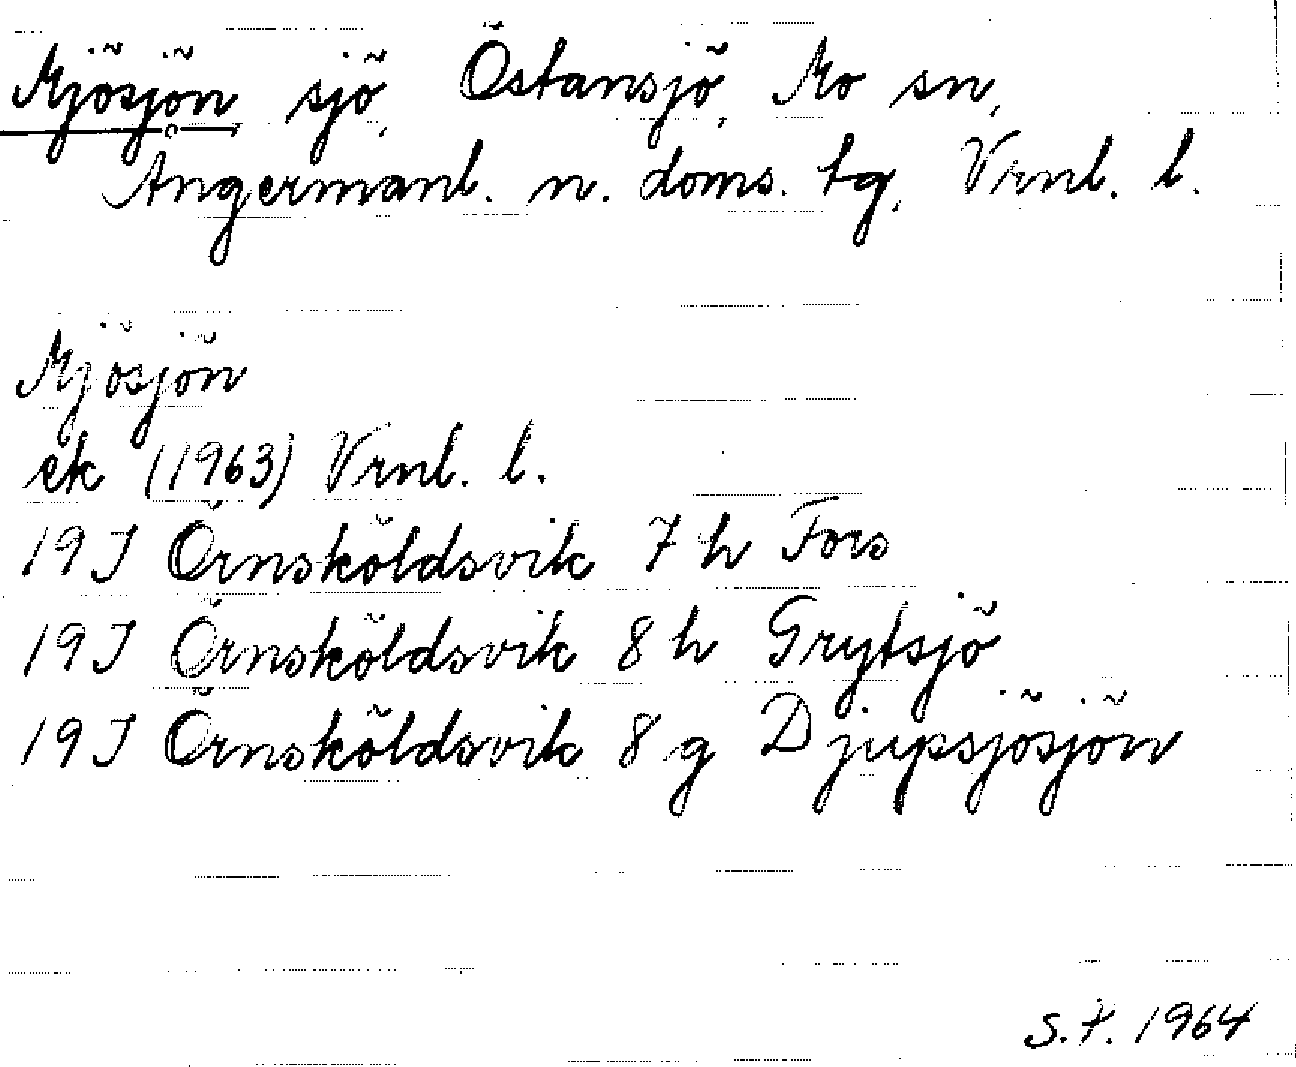 Mjösjön sjö, Östansjö, Mo sn,
Ångermanl. n. doms. tg, Vrnl. l.
Mjösjön
ek (1963) Vrnl. l.
19J Örnsköldsvik 7 h Fors
19J Örnsköldsvik 8 h Grytsjö
19J Örnsköldsvik 8 g Djupsjösjön
S.F. 1964